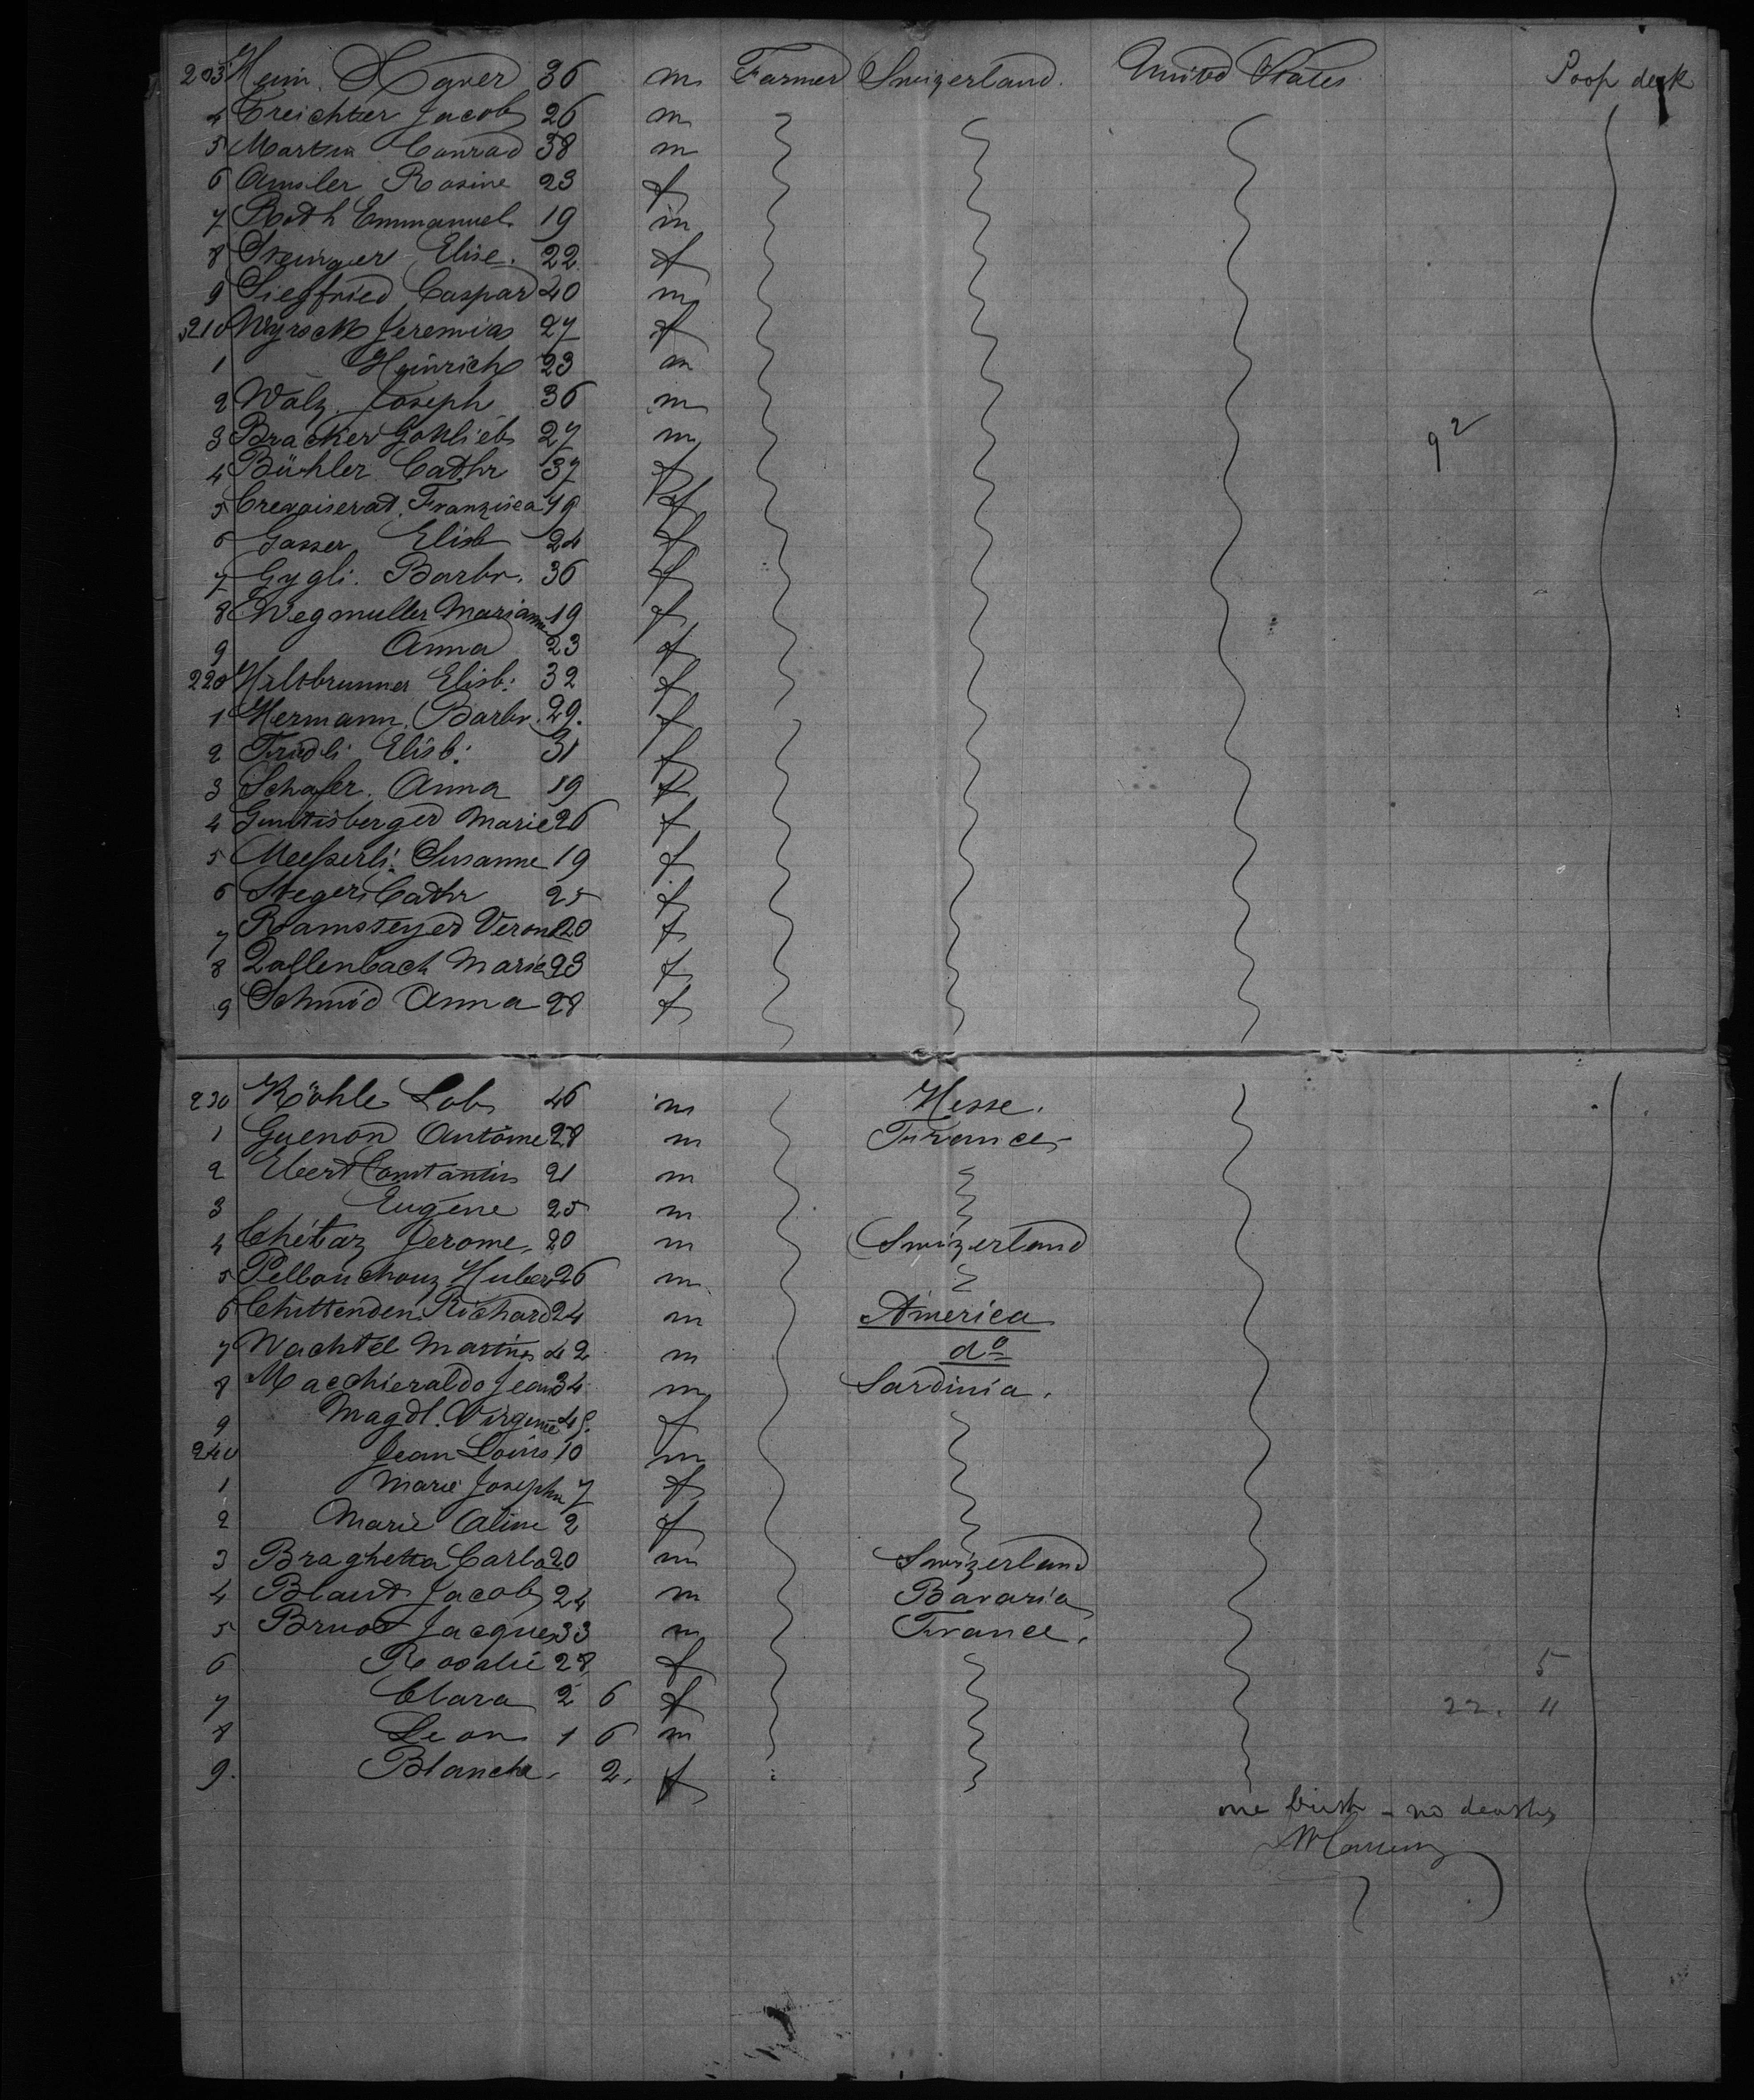 203 Heim Xaver 36 m Farmer Swizerland. United States Poop deck
4 Treichter Jacob 26 m
5 Martin Conrad 38 m
6 Amsler Rosine 23 f
7 Roth Emmanuel 19 m
8 Steinger Elise. 22 f
9 Siegfried Caspar 40 m
210 Wyrsch Jeremias 27 f
1 Heinrich 23 m
2 Wälz. Joseph 36 m
3 Bracker Gottlieb 27 m 9 2
4 Bühler Cathr 37 f
5 Franzisca 19 f
6 Gasser Elisb 24 f
7 Gygli. Barbr. 36 f
8 Wegmuller Mariann 19 f
9 Anna 23 f
220 Hiltbrunner Elisb: 32 f
1 Hermann, Barbr. 29. f
2 Friedli Elisb: 31 f
3 Schafer. Anna 19 f
4 Marie 26 f
5 Messerli. Susanne 19 f
6 Steger Cathr 25 f
7 Ramseyer Veron 20 f
8 Zollenbach Marie 23 f
9 Schmid Anna 28 f
230 Köhle Lob 46 m Hesse.
1 Guenon Antoine 28 m France
2 Ebert Constantin 21 m
3 Eugène 25 m
4 Chétaz Jerome, 20 m Swizerland
5 Huber 26 m
6 Chittenden Richard 24 m America
7 Wachtel Martin 42 m do
8 Macchieraldo Jean 34 m Sardinia.
9 Magdl. Virginie f
240 Jean Louis 10 m
1 Marie Josephe 7 f
2 Marie Aline 2 f
3 Braghetta Carlo 20 m Swizerland
4 Blaut Jacob 24 m Bavaria
5 Bruot Jacques 33 m France.
6 Rosalie 28 f 5
7 Clara 2 6 f 22. 11
8 Leon 1 6 m
9. Blanche. 2. f
one birth - no deaths